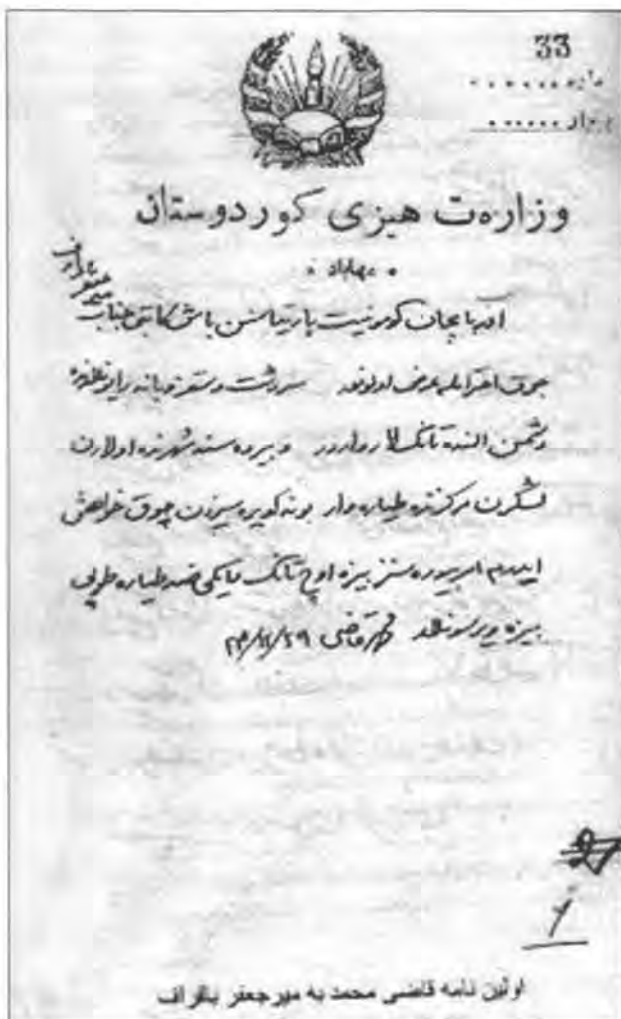 33
ماره ......
بهار ......
وزارەت هیزی کوردوستان
* مهاباد *
آذربایجان کمونیست پارتیاسنن باش کاتبی جناب
چوق احترامله عرض اولونور سردشت و سقز و بانه
دشمن النده تانک لار واردور و بیزه سنه شهرنده اولارن
لشکرن مرکزنده طیاره وار بونه کوره سیزدن چوق خواهش
ایدیرم امر بیوره سنز بیزه اوچ تانک یا ایکی ضد طیاره طوپی
بیزه ویرسونلر محمد قاضی
اولین نامه قاضی محمد به میرجعفر باقراف